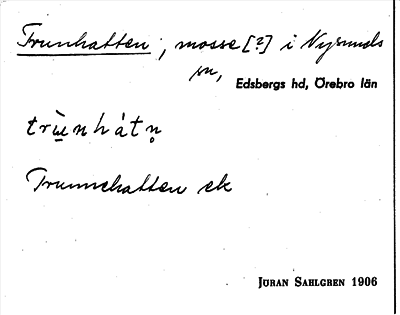 Trunhatten, mosse [?] i Nysunds
sn, Edsbergs hd, Örebro län
trùnhátn̥
Trunnehatten ek
JÖRAN SAHLGREN 1906